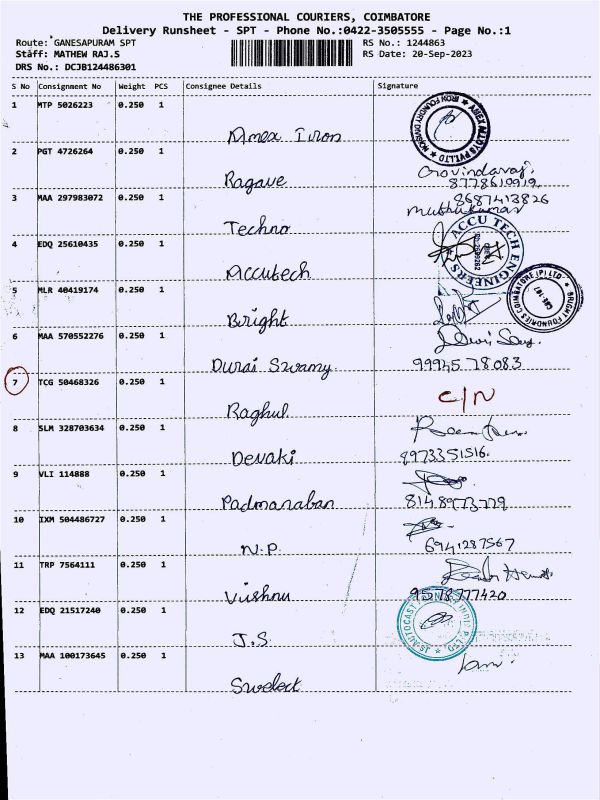 THE PROFESSIONAL COURIERS, COIMBATORE
Delivery Runsheet - SPT - Phone No.:0422-3505555 - Page No.:1
Route: GANESAPURAM SPT RS No.: 1244863
Staff: MATHEW RAJ.S RS Date: 20-Sep-2023
DRS No.: DCJB124486301
S No Consignment No Weight PCS Consignee Details Signature
1 MTP 5026223 0.250 1
Amex Iron
2 PGT 4726264 0.250 1
Ragave Govindaraj.
8778610919
3 MAA 297983072 0.250 1 8687413826
Techno Muthukumar
4 EDQ 25610435 0.250 1 ACCU TECH ENGINEERS
Accutech
5 MLR 40419174 0.250 1
Bright
6 MAA 570552276 0.250 1
Durai Swamy 99945 78083
7 TCG 50468326 0.250 1 C/N
Raghul
8 SLM 328703634 0.250 1
Devaki 8973351516.
9 VLI 114888 0.250 1
Padmanaban
10 IXM 504486727 0.250 1
N.P. 6941287567
11 TRP 7564111 0.250 1
Vishnu 9578777420
12 EDQ 21517240 0.250 1
J.S.
13 MAA 100173645 0.250 1
Swelect